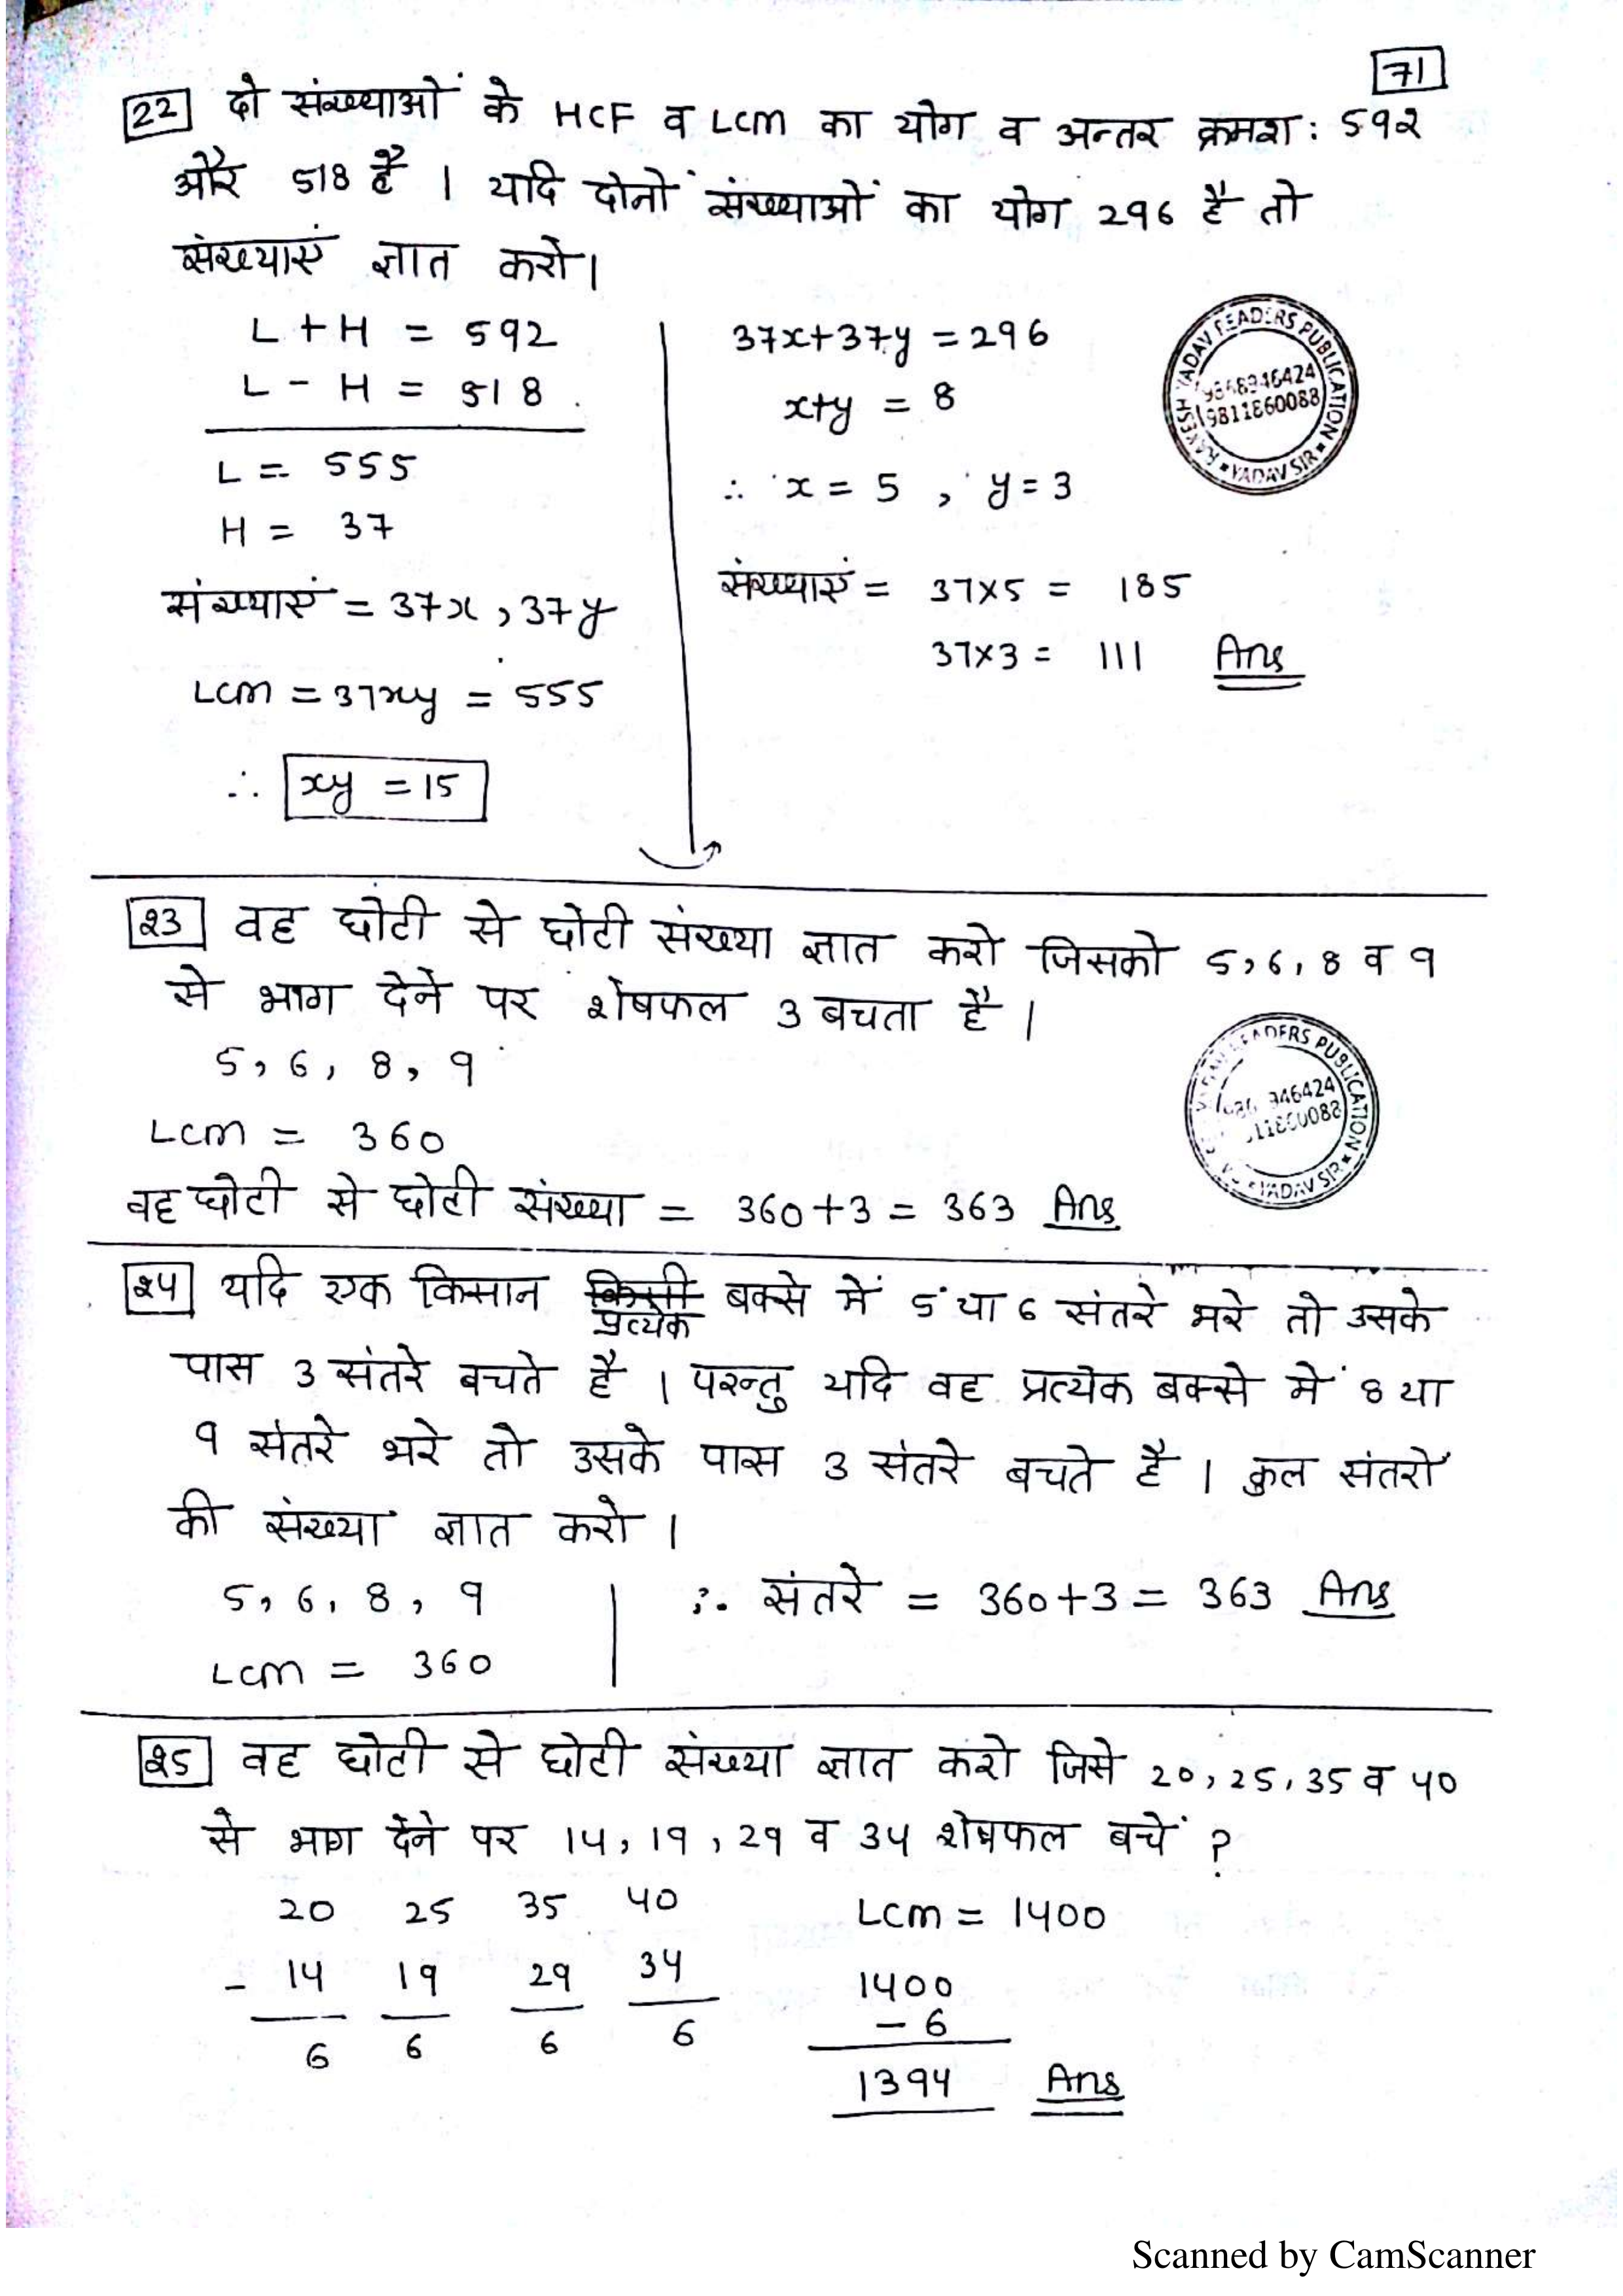 71
22 दो संख्याओं के HCF व LCM का योग व अन्तर क्रमश: 592
और 518 है । यदि दोनों संख्याओं का योग 296 है तो
संख्याएं ज्ञात करो।
L + H = 592
L - H = 518
L = 555
H = 37
संख्याएं = 37x, 37y
LCM = 37xy = 555
∴ xy = 15
37x+37y = 296
x+y = 8
∴ x = 5 , y = 3
संख्याएं = 37×5 = 185
37×3 = 111 Ans
RAKESH YADAV READERS PUBLICATION
9868946424
9811860088
YADAV SIR
23 वह छोटी से छोटी संख्या ज्ञात करो जिसको 5, 6, 8 व 9
से भाग देने पर शेषफल 3 बचता है ।
5, 6, 8, 9
LCM = 360
वह छोटी से छोटी संख्या = 360+3 = 363 Ans
READERS PUBLICATION
946424
YADAV SIR
24 यदि एक किसान किसी बक्से में 5 या 6 संतरे भरे तो उसके
प्रत्येक
पास 3 संतरे बचते है । परन्तु यदि वह प्रत्येक बक्से में 8 या
9 संतरे भरे तो उसके पास 3 संतरे बचते है । कुल संतरों
की संख्या ज्ञात करो ।
5, 6, 8, 9
LCM = 360
∴ संतरे = 360+3 = 363 Ans
25 वह छोटी से छोटी संख्या ज्ञात करो जिसे 20, 25, 35 व 40
से भाग देने पर 14, 19, 29 व 34 शेषफल बचें ?
20 25 35 40
- 14 19 29 34
6 6 6 6
LCM = 1400
1400
- 6
1394 Ans
Scanned by CamScanner